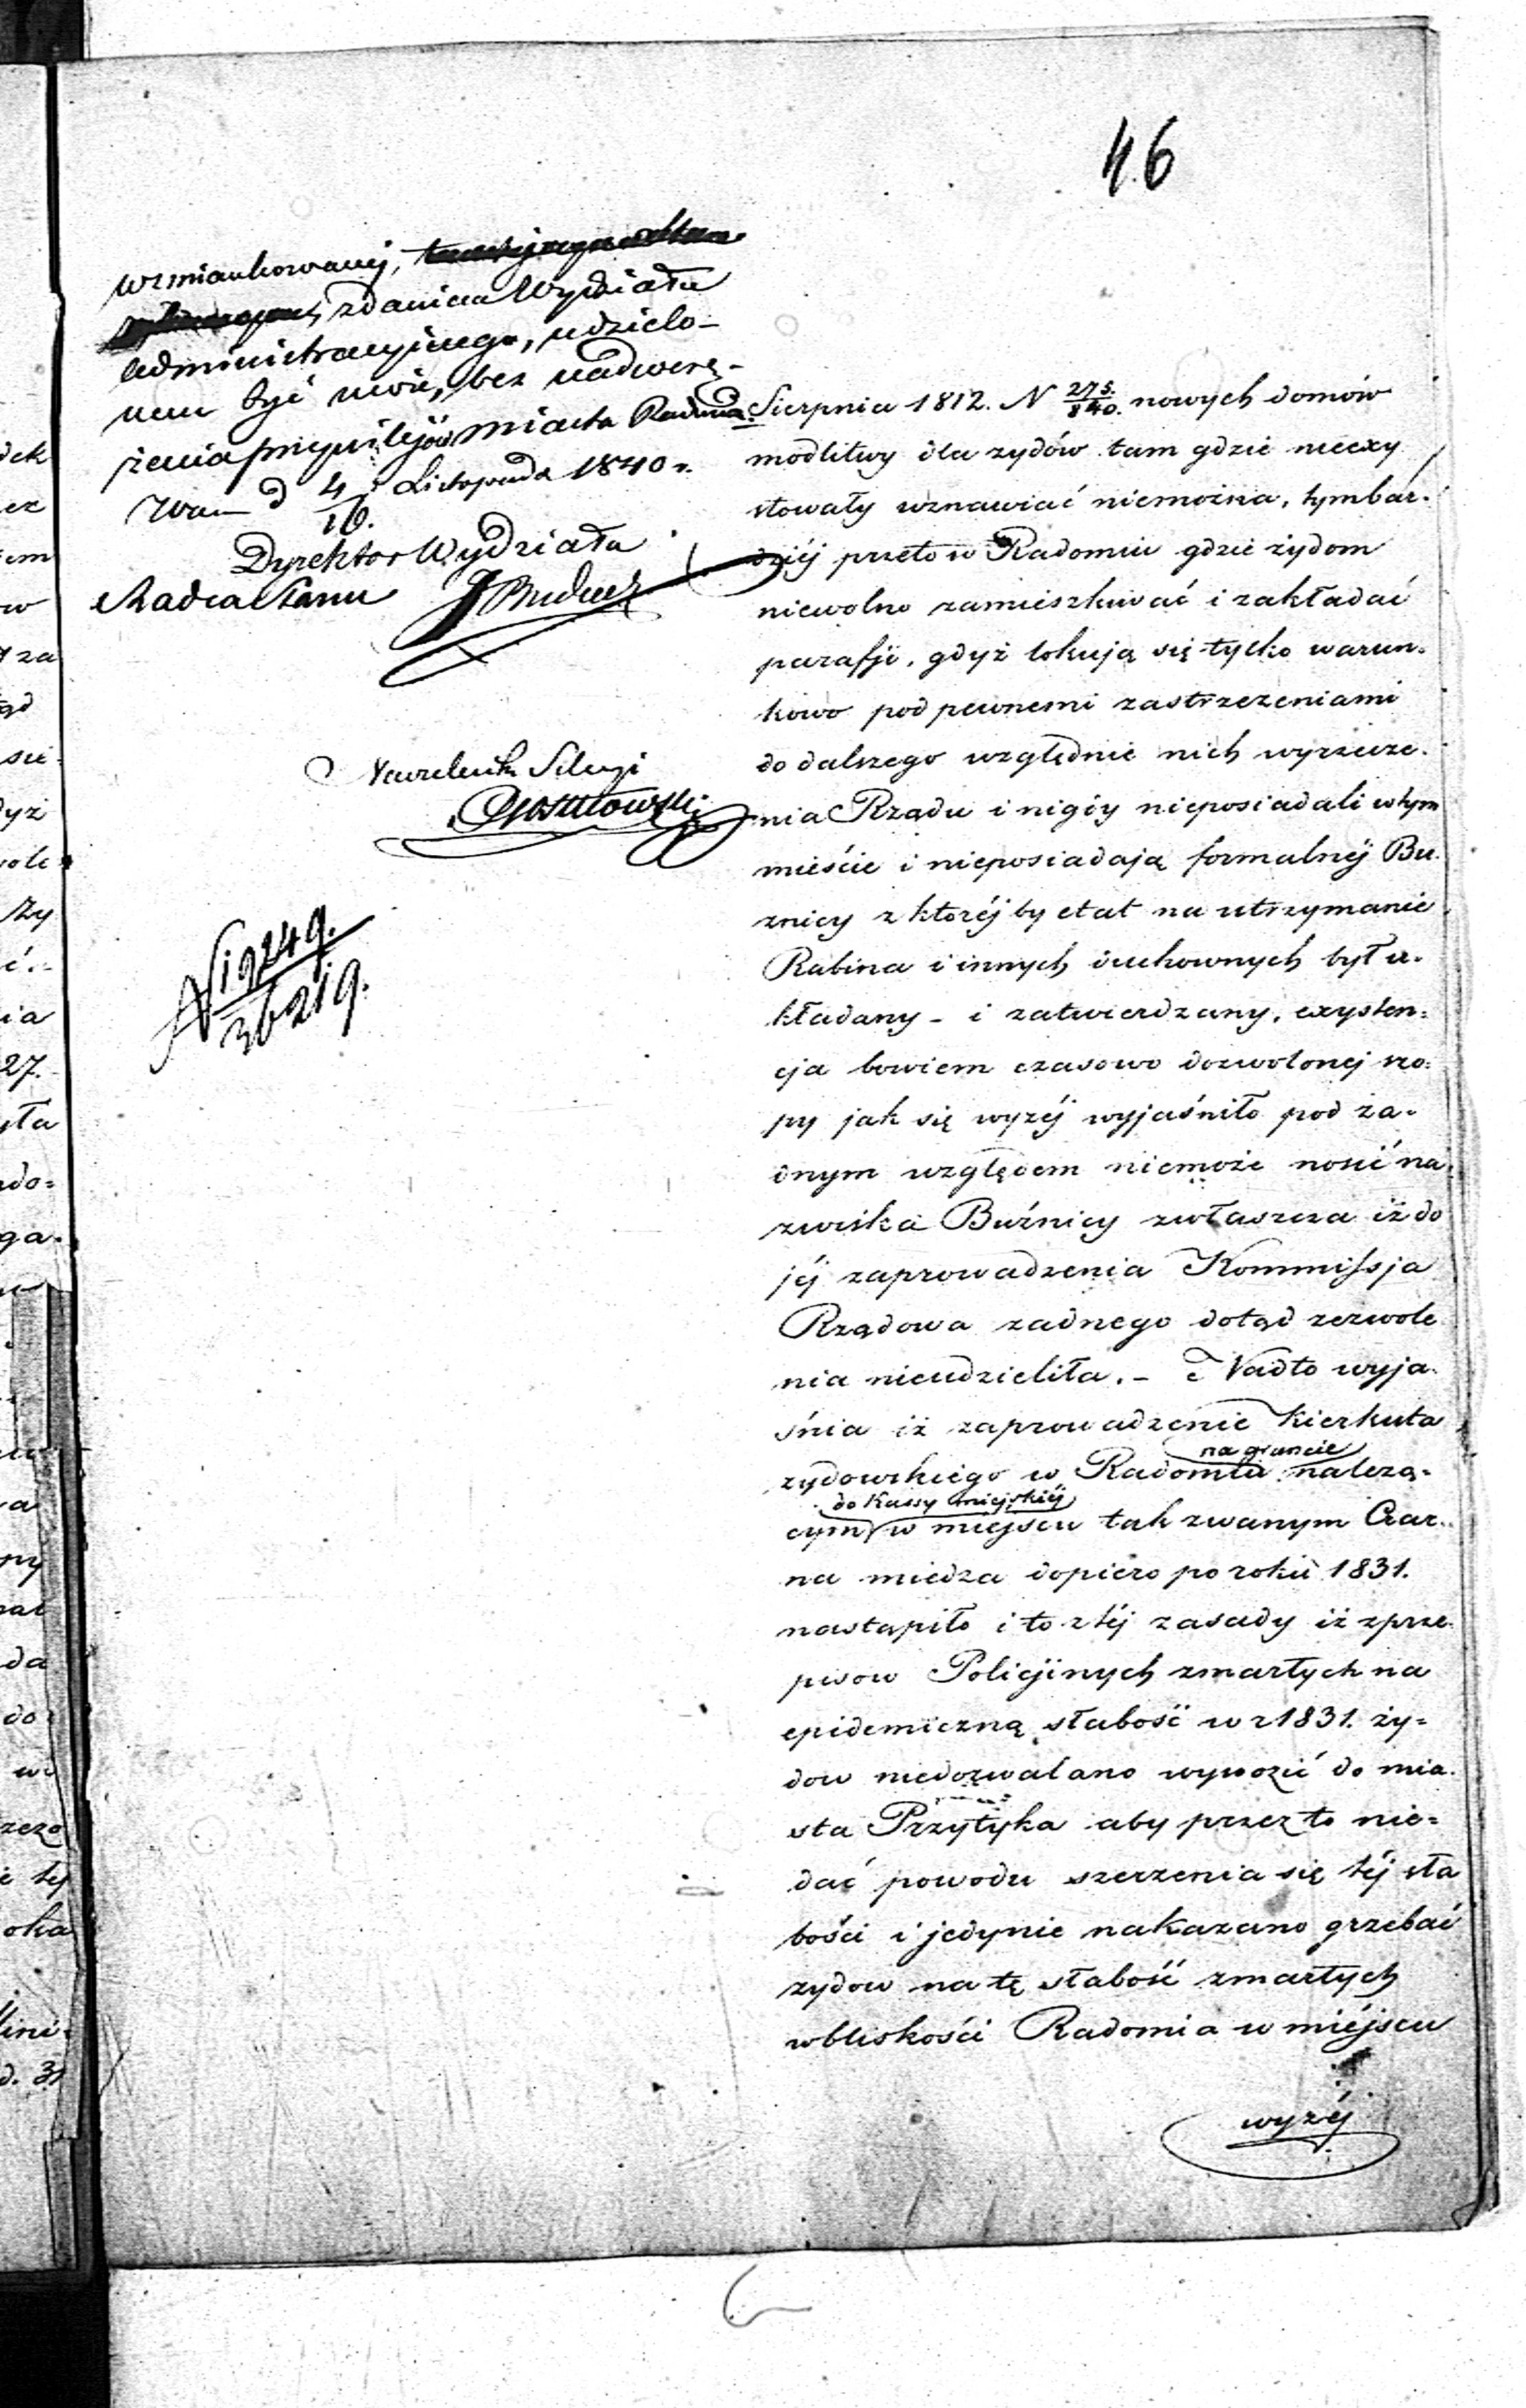 46
wzmiankowanej,
zdaniem Wydziału
Administracyjnego, udzielo-
nem być może, bez nadwerę-
żenia przywilejów miasta Radomia.
War d 4/16. Listopada 1840 r.
Dyrektor Wydziału
Radca Stanu
Naczelnik Sekcyi
N 19249.
36219.
Sierpnia 1812. N 275./840. nowych domów
modlitwy dla zydów tam gdzie nieexy
stowały wznawiać niemożna, tymbar-
dziéj przeto w Radomiu gdzie żydom
niewolno zamieszkiwać i zakładać
parafji, gdyż lokują się tylko warun-
kowo pod pewnemi zastrzezeniami
do dalszego względnie nich wyrzecze-
nia Rządu i nigdy nieposiadali w tym
mieście i nieposiadają formalnéj Bu-
znicy z któréj by etat na utrzymanie
Rabina i innych duchownych był u-
kładany - i zatwierdzany, exysten-
cja bowiem czasowo dozwolonej szo-
py jak się wyzéj wyjaśniło pod ża-
dnym względem niemoże nosić na-
zwiska Buźnicy zwłaszcza iż do
jéj zaprowadzenia Kommissja
Rządowa zadnego dotąd zezwole
nia nieudzieliła. - Nadto wyja-
śnia iż zaprowadzenie Kierkuta
na gruncie
zydowskiego w Radomiu nalezą-
do Kassy miejskiéj
cym w miejscu tak zwanym Czar-
na miedza dopiero po roku 1831.
nastąpiło i to z téj zasady iż z prze-
pisow Policijnych zmarłych na
epidemiczną słabość w r 1831. ży-
dow niedozwalano wywozić do mia-
sta Przytyka aby przez to nie-
dać powodu szerzenia się téj sła
bości i jedynie nakazano grzebać
zydow na tę słabość zmarłych
w bliskości Radomia w miéjscu
wyzéj